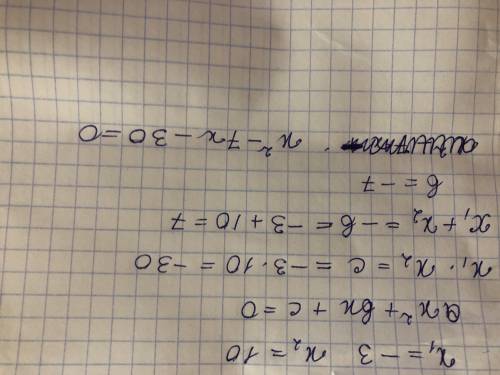 x₁ = −3 x₂ = 10
ax² + bx + c = 0
x₁ · x₂ = c = −3 · 10 = −30
x₁ + x₂ = −b = −3 + 10 = 7
b = −7
x² − 7x − 30 = 0